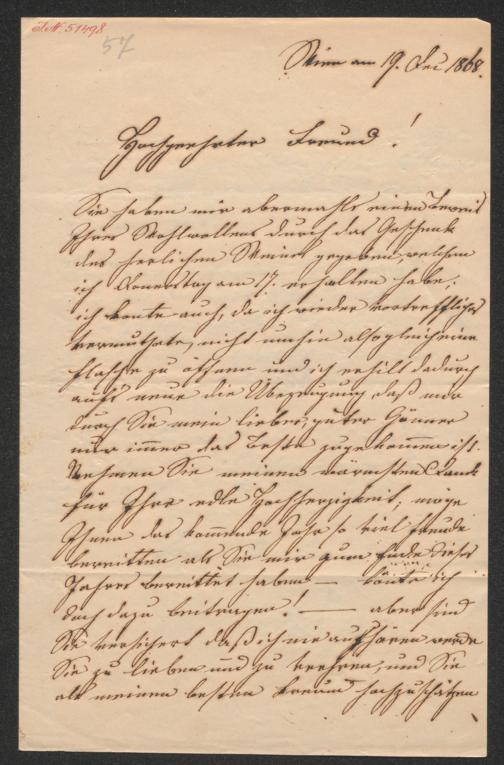 J.N. 51498
57
Wien am 19. Dec 1868.
Hochgeehrter Freund!
Sie haben mir abermahls einen Beweis
Ihres Wohlwollens durch das Geschenk
des herlichen Weines gegeben, welchen
ich Donnerstag am 17. erhalten habe.
ich konte auch, da ich wieder vortreffliches
vermuthete, nicht umhin alsogleich eine
Flasche zu öffnen und ich erhilt dadurch
aufs neue die Überzeugung, daß mir
durch Sie mein lieber, guter Gönner
nur immer das Beste zugekommen ist.
Nehmen Sie meinen wärmsten Dank
für Ihre edle Hochherzigkeit, möge
Ihnen das kommende Jahr so viel Freude
bereitten als Sie mir zum Ende dieses
Jahres bereittet haben — könte ich
doch dazu beitragen! — aber sind
Sie versichert daß ich nie aufhören werde
Sie zu lieben und zu verehren, und Sie
als meinen besten Freund hochzuschätzen